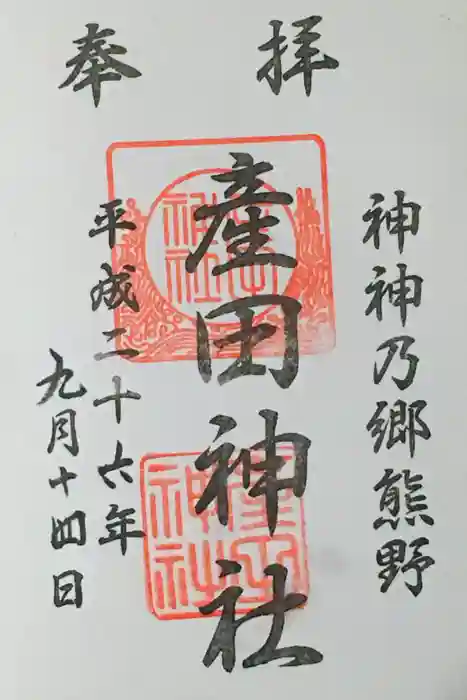 奉拝
神神乃郷熊野
産田神社
平成二十六年
九月十四日